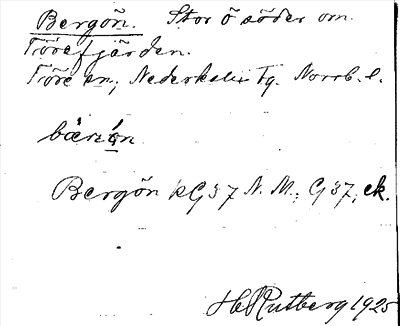 Bergön. Stor ö söder om
Törefjärden.
Töre sn, Nederkalix tg. Norrb. l.
bærı̨ön
Bergön kG37 N. M.; G37, ek.
H Rutberg 1925